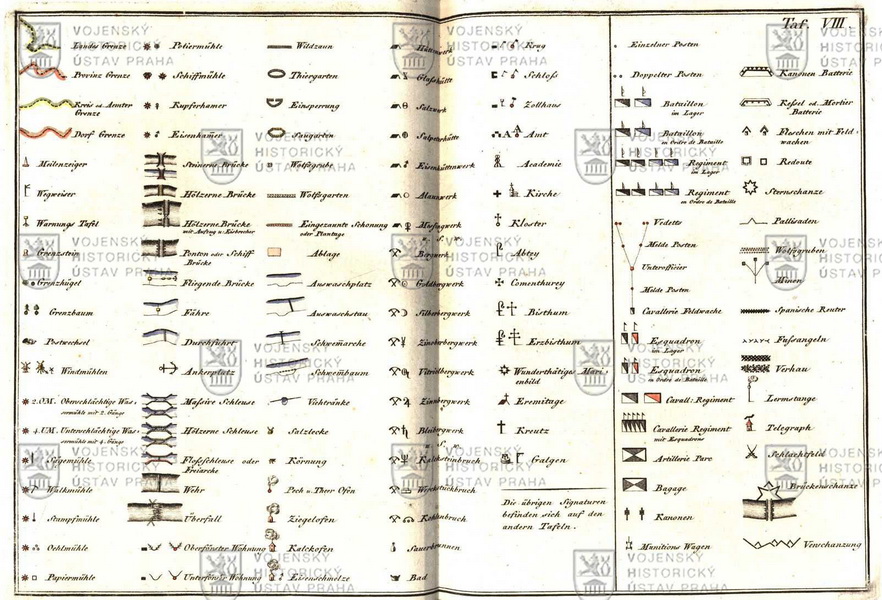 Taf. VIII
Landes Grenze
Provinz Grenze
Kreis od. Aemter
Grenze
Dorf Grenze
Meilenzeiger
Wegweiser
Warnungs Tafel
Grenzstein
Grenzhügel
Grenzbaum
Postwechsel
Windmühlen
2.O.M. Oberschlächtige Was-
sermühle mit 2. Gänge
4.U.M. Unterschlächtige Was-
sermühle mit 4. Gänge
Sägemühle
Walkmühle
Stampfmühle
Oehlmühle
Papiermühle
Poliermühle
Schiffmühle
Kupferhamer
Eisenhamer
Steinerne Brücke
Hölzerne Brücke
Hölzerne Brücke
mit Aufzug u. Eisbrecher
Ponton oder Schiff
Brücke
Fliegende Brücke
Fähre
Durchfuhrt
Ankerplatz
Massive Schleuse
Hölzerne Schleuse
Flossschleuse oder
Freiarche
Wehr
Überfall
Oberförster Wohnung
Unterförster Wohnung
Wildzaun
Thiergarten
Einsperung
Saugarten
Wolfsgrube
Wolfsgarten
Eingezaunte Schonung
oder Plantage
Ablage
Auswaschplatz
Auswaschstau
Schwemarche
Schwembaum
Viehtränke
Salzlecke
Körnung
Pech u. Theer Ofen
Ziegelofen
Kalckofen
Eisenschmelze
Hüttenwerk
Glashütte
Salzwerk
Salpeterhütte
Eisenhüttenwerk
Alaunwerk
Messingwerk
u. s. w.
Bergwerk
Goldbergwerk
Silberbergwerk
Zinoberbergwerk
Vitriolbergwerk
Zinnbergwerk
Bleibergwerk
u. s. w.
Kalcksteinbruch
Werckstückbruch
Kohlenbruch
Sauerbrunnen
Bad
Krug
Schloss
Zollhaus
Amt
Academie
Kirche
Kloster
Abtey
Comenthurey
Bisthum
Erzbisthum
Wunderthätiges Mari-
enbild
Eremitage
Kreutz
Galgen
Die übrigen Signaturen
befinden sich auf den
andern Tafeln.
Einzelner Posten
Doppelter Posten
Bataillon
im Lager
Bataillon
en Ordre de Bataille
Regiment
im Lager
Regiment
en Ordre de Bataille
Vedette
Milde Posten
Unterofficier
Milde Posten
Cavallerie Feldwache
Esquadron
im Lager
Esquadron
en Ordre de Bataille
Cavall: Regiment
Cavallerie Regiment
mit Esquadrons
Artillerie Parc
Bagage
Kanonen
Munitions Wagen
Kanonen Batterie
Kessel od. Mortier
Batterie
Fleschen mit Feld-
wachen
Redoute
Sternschanze
Pallisaden
Wolfsgruben
Minen
Spanische Reuter
Fussangeln
Verhau
Lermstange
Telegraph
Schlachtfeld
Brückenschanze
Verschanzung
VOJENSKÝ
HISTORICKÝ
ÚSTAV PRAHA